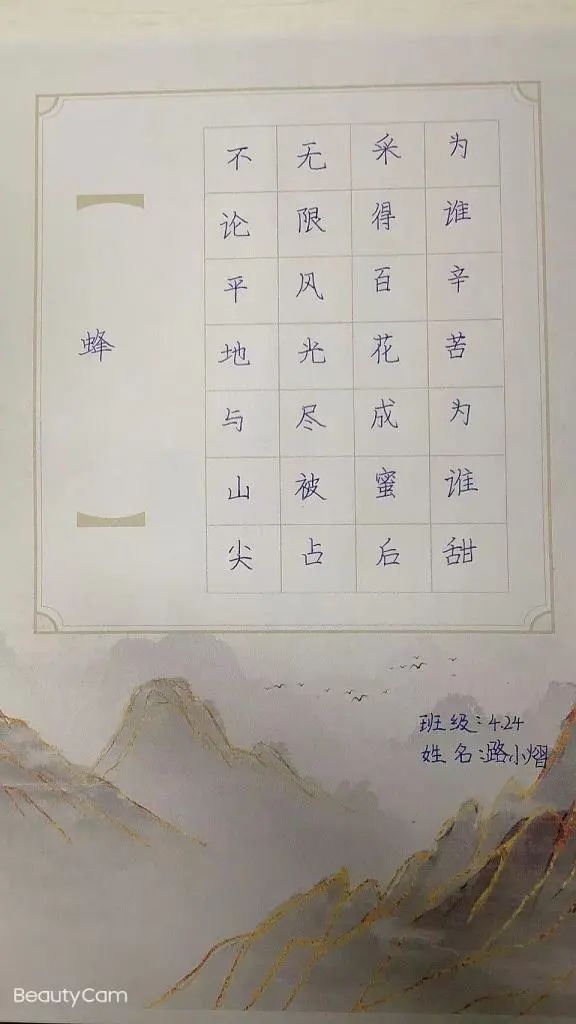 蜂
不论平地与山尖
无限风光尽被占
采得百花成蜜后
为谁辛苦为谁甜
班级:4.24
姓名:路小熠
BeautyCam